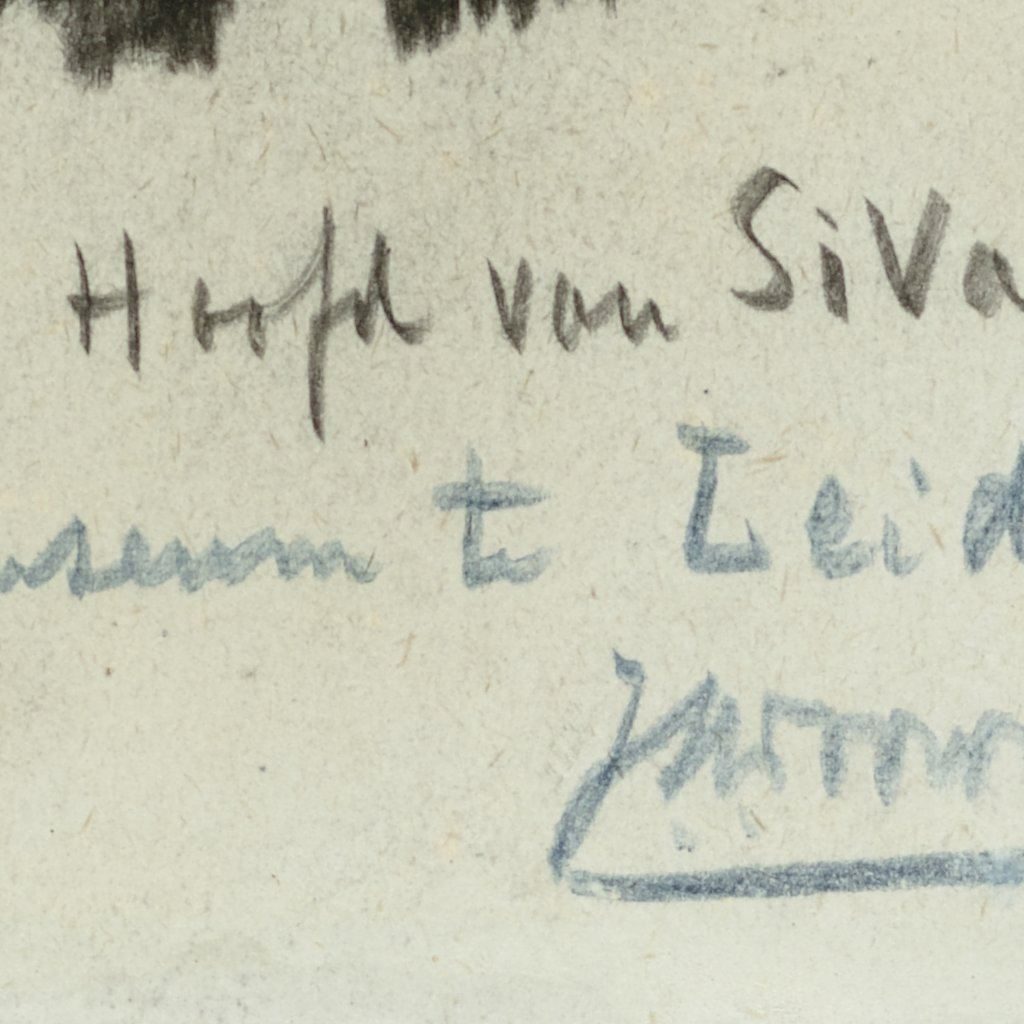 Hoofd van SiVa
useum te Leid